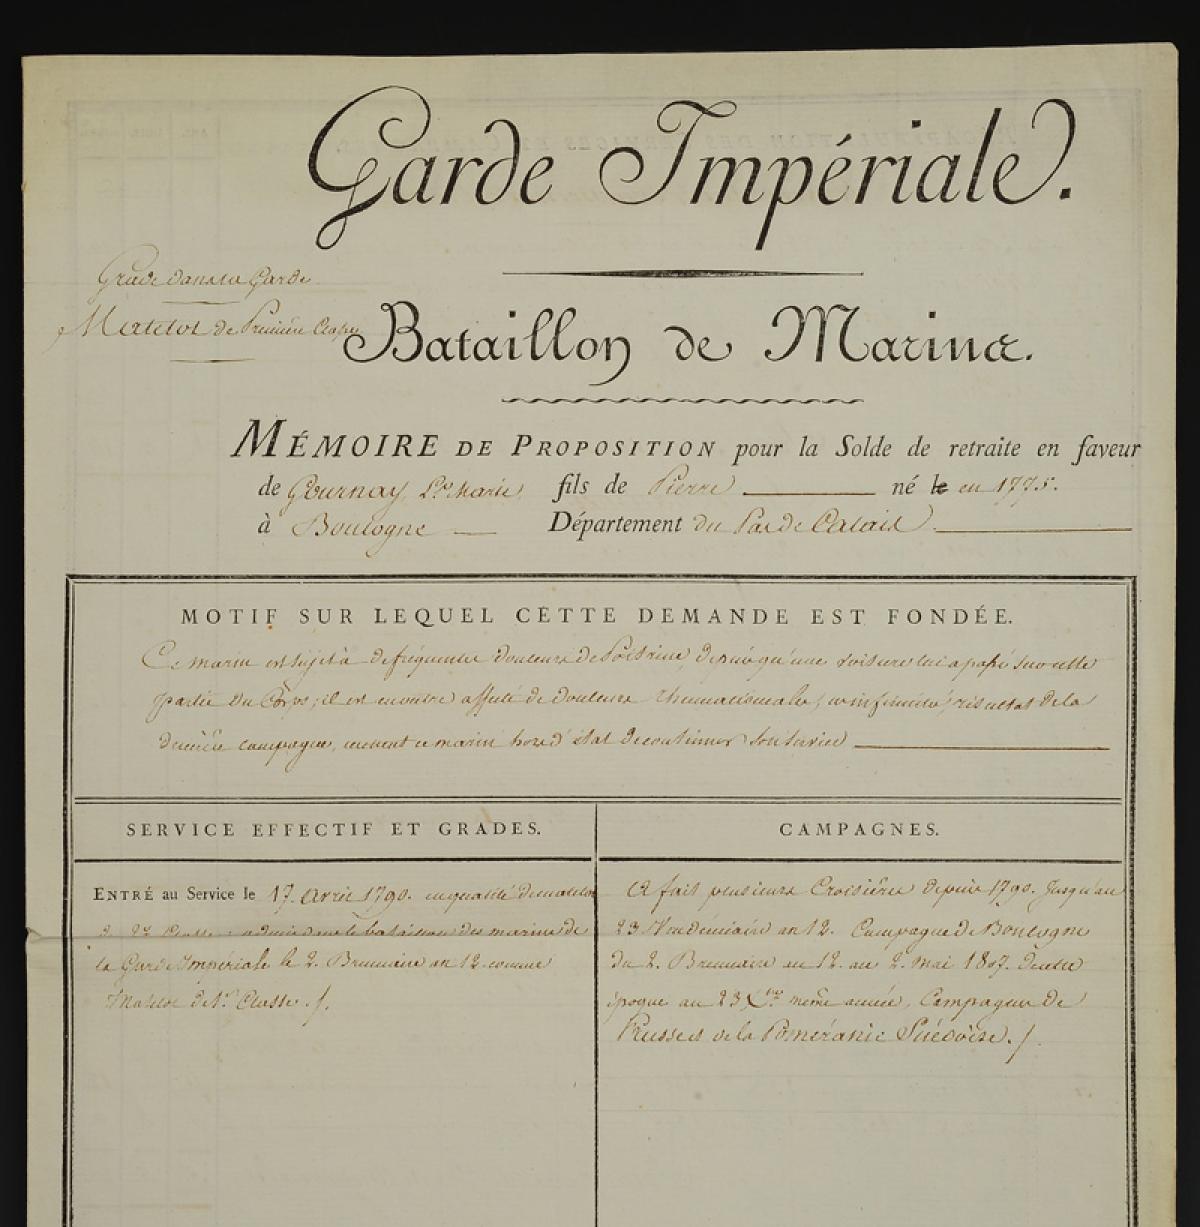 Garde Impériale.
Grade dans la Garde
Matelot de Première Classe
Bataillon de Marine.
MÉMOIRE DE PROPOSITION pour la Solde de retraite en faveur
de Gournay, Ls. Marie, fils de Pierre né le en 1775.
à Boulogne Département du Pas de Calais
MOTIF SUR LEQUEL CETTE DEMANDE EST FONDÉE.
Ce marin est sujet à de fréquentes douleurs de Poitrine depuis qu'une voiture lui a passé sur cette
partie du Corps; il est en outre affecté de douleurs rhumatismales, infirmité, résultat de la
dernière campagne, mettent ce marin hors d'état de continuer son service
SERVICE EFFECTIF ET GRADES.
CAMPAGNES.
ENTRÉ au Service le 17. avril 1790. en qualité de matelot
de 2e. Classe; admis dans le bataillon des marins de
la Garde Impériale le 2. Brumaire an 12. comme
Matelot de 1re. Classe. /.
A fait plusieurs Croisières depuis 1790. Jusqu'au
23 Vendémiaire an 12. Campagne de Boulogne
du 2. Brumaire an 12. au 2. mai 1807. de cette
époque au 23 Xbre. même année, Campagnes de
Prusse et de la Poméranie Suédoise. /.